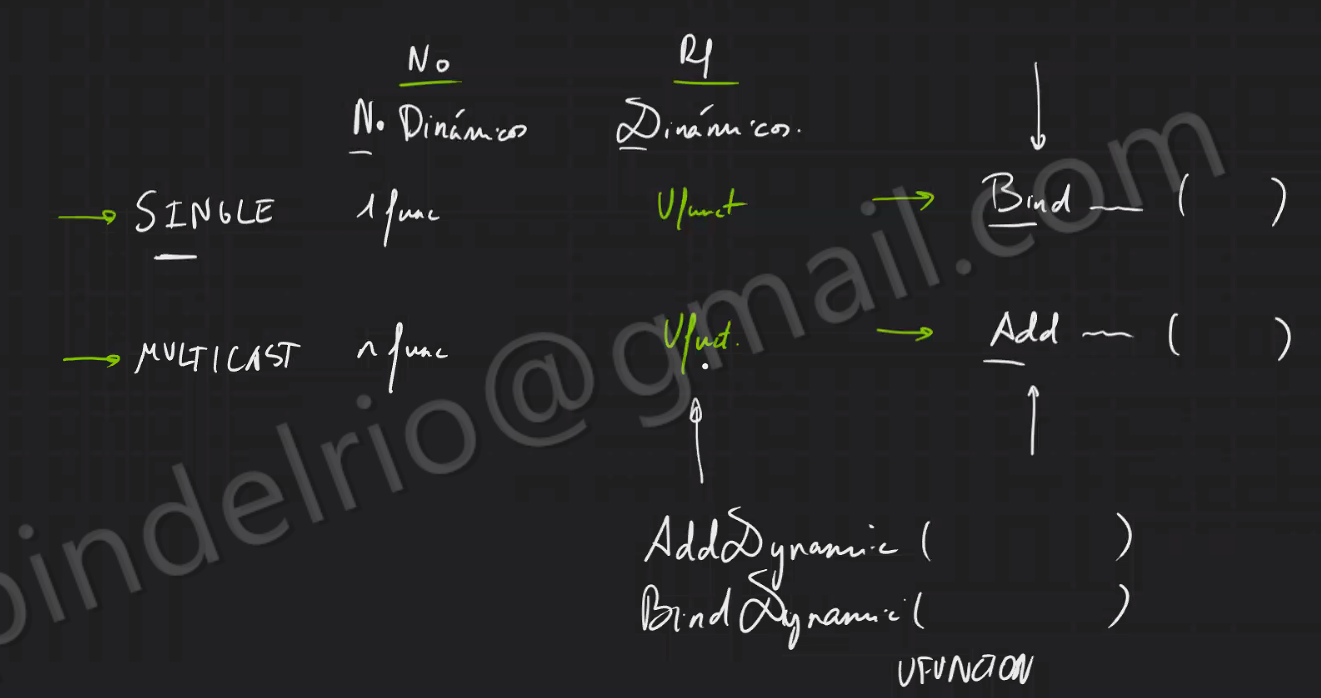 No Rf
No Dinámicos Dinámicos.
→ SINGLE 1 func Ufunct → Bind __ ( )
→ MULTICAST n func Ufuct. → Add __ ( )
AddDynamic ( )
BindDynamic ( )
UFUNCTION
bindelrio@gmail.com